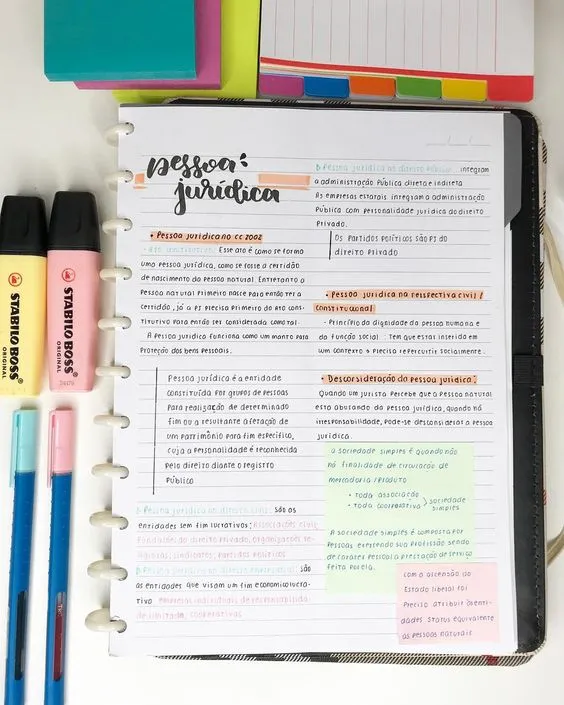 pessoa
jurídica
• Pessoa jurídica no CC 2002
- Ato constitutivo: Esse ato é como se forma
uma pessoa jurídica, como se fosse a certidão
de nascimento da pessoa natural. Entretanto a
Pessoa natural primeiro nasce para então ter a
certidão, já a PJ precisa primeiro do ato cons-
titutivo para então ser considerada como tal.
A pessoa jurídica funciona como um manto para
Proteção dos bens pessoais.
Pessoa jurídica é a entidade
constituída por grupos de pessoas
Para realização de determinado
fim ou a resultante afetação de
um patrimônio para fim específico,
cuja a personalidade é reconhecida
Pelo direito diante o registro
Público
Pessoa jurídica no direito civil: são os
entidades sem fim lucrativos; Associações civis,
Fundações do direito privado, organizações re-
ligiosas, sindicatos, partidos políticos
Pessoa jurídica no direito empresarial: são
as entidades que visam um fim economico lucra-
tivo. empresas individuais de responsabilida-
de limitada, cooperativas.
Pessoa jurídica no direito Público: integram
a administração Pública direta e indireta
As empresas estatais integram a administração
Pública com personalidade jurídica do direito
Privado.
Os Partidos Políticos são PJ do
direito Privado
• Pessoa jurídica na perspectiva civil/
constitucional
- Princípio da dignidade da pessoa humana e
da função social: Tem que estar inserida em
um contexto e precisa repercutir socialmente.
• Desconsideração da pessoa jurídica:
Quando um jurista percebe que a Pessoa natural
esta abusando da pessoa jurídica, quando há
irresponsabilidade, Pode-se desconsiderar a pessoa
jurídica.
A sociedade simples é quando não
há finalidade de circulação de
mercadoria/Produto
• Toda associação
• Toda cooperativa } sociedade
simples
A sociedade simples é composta por
Pessoas exercendo sua Profissão sendo
de caráter pessoal a prestação de serviço
feita por ela.
com a ascensão do
Estado liberal foi
Preciso atribuir à enti-
dades status equivalente
as pessoas naturais
STABILO BOSS
ORIGINAL
STABILO BOSS
ORIGINAL